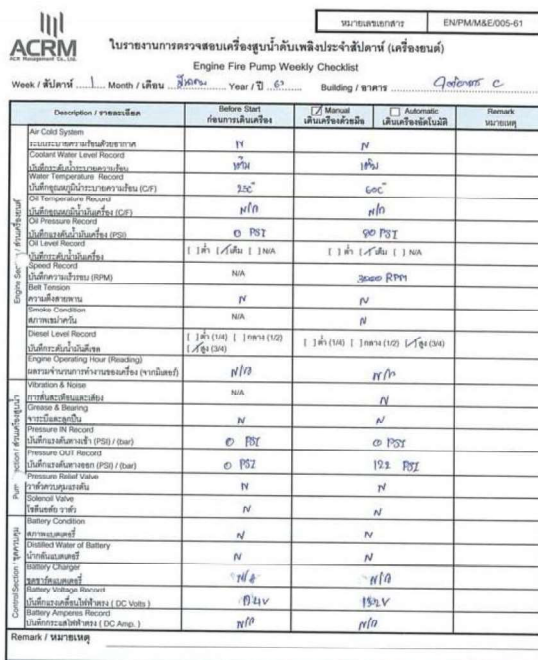 หมายเลขเอกสาร EN/PM/M&E/005-61
ACRM
ACR Management Co., Ltd.
ใบรายงานการตรวจสอบเครื่องสูบน้ำดับเพลิงประจำสัปดาห์ (เครื่องยนต์)
Engine Fire Pump Weekly Checklist
Week / สัปดาห์ 1 Month / เดือน Year / ปี Building / อาคาร C
Description / รายละเอียด Before Start Manual Automatic Remark
ก่อนการเดินเครื่อง เดินเครื่องด้วยมือ เดินเครื่องอัตโนมัติ หมายเหตุ
Air Cold System
ระบบระบายความร้อนด้วยอากาศ N N
Coolant Water Level Record
บันทึกระดับน้ำระบายความร้อน เต็ม เต็ม
Water Temperature Record
บันทึกอุณหภูมิน้ำระบายความร้อน (C/F) 25C° 60C°
Oil Temperature Record
บันทึกอุณหภูมิน้ำมันเครื่อง (C/F) N/A N/A
Oil Pressure Record
บันทึกแรงดันน้ำมันเครื่อง (PSI) 0 PSI 90 PSI
Oil Level Record
บันทึกระดับน้ำมันเครื่อง [ ] ต่ำ [✓] เต็ม [ ] N/A [ ] ต่ำ [✓] เต็ม [ ] N/A
Speed Record
บันทึกความเร็วรอบ (RPM) N/A 3000 RPM
Belt Tension
ความตึงสายพาน N N
Smoke Condition
สภาพเขม่าควัน N/A N
Diesel Level Record
บันทึกระดับน้ำมันดีเซล [ ] ต่ำ (1/4) [ ] กลาง (1/2) [✓] สูง (3/4) [ ] ต่ำ (1/4) [ ] กลาง (1/2) [✓] สูง (3/4)
Engine Operating Hour (Reading)
ผลรวมจำนวนการทำงานของเครื่อง (จากมิเตอร์) N/A N/A
Vibration & Noise
การสั่นสะเทือนและเสียง N/A N
Grease & Bearing
จาระบีและลูกปืน N N
Pressure IN Record
บันทึกแรงดันทางเข้า (PSI) / (bar) 0 PSI 0 PSI
Pressure OUT Record
บันทึกแรงดันทางออก (PSI) / (bar) 0 PSI 122 PSI
Pressure Relief Valve
วาล์วควบคุมแรงดัน N N
Solenoil Valve
โซลินอยด์ วาล์ว N N
Battery Condition
สภาพแบตเตอรี่ N N
Distilled Water of Battery
น้ำกลั่นแบตเตอรี่ N N
Battery Charger
ชุดชาร์ตแบตเตอรี่ N/A N/A
Battery Voltage Record
บันทึกแรงเคลื่อนไฟฟ้าตรง ( DC Volts )
Battery Amperes Record
บันทึกกระแสไฟฟ้าตรง ( DC Amp. ) N/A N/A
Remark / หมายเหตุ